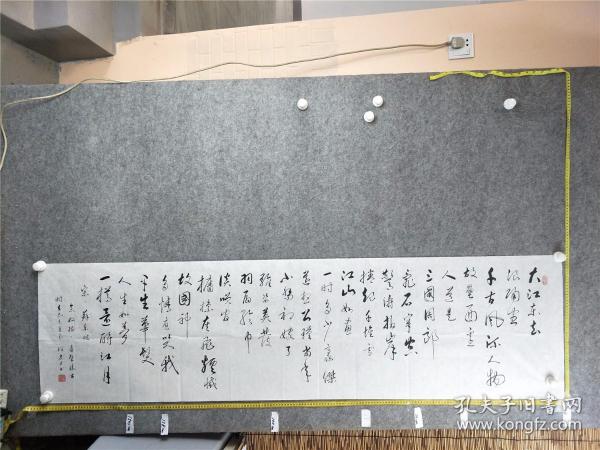 大江东去
浪淘尽
千古风流人物
故垒西边
人道是
三国周郎
乱石穿空
惊涛拍岸
捲起千堆雪
江山如画
一时多少豪傑
遥想公瑾当年
小乔初嫁了
雄姿英发
羽扇纶巾
谈笑间
樯橹灰飞烟灭
故国神
多情应笑我
早生华发
人生如梦
一樽还酹江月
宋 苏东坡
孔夫子旧书网